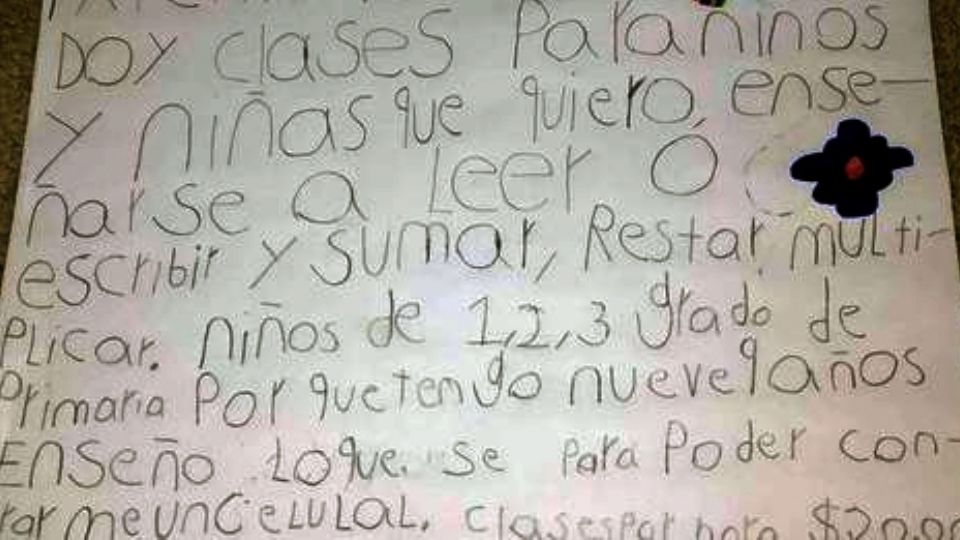 DOY clases Para niños
Y niñas que quiero, ense-
ñarse a Leer ó
escribir y sumar, Restar multi-
Plicar. niños de 1,2,3 grado de
Primaria Por que tengo nueve 9 años
Enseño Lo que se para Poder con-
rar me un CeLULaL. Clases por hora $20.00